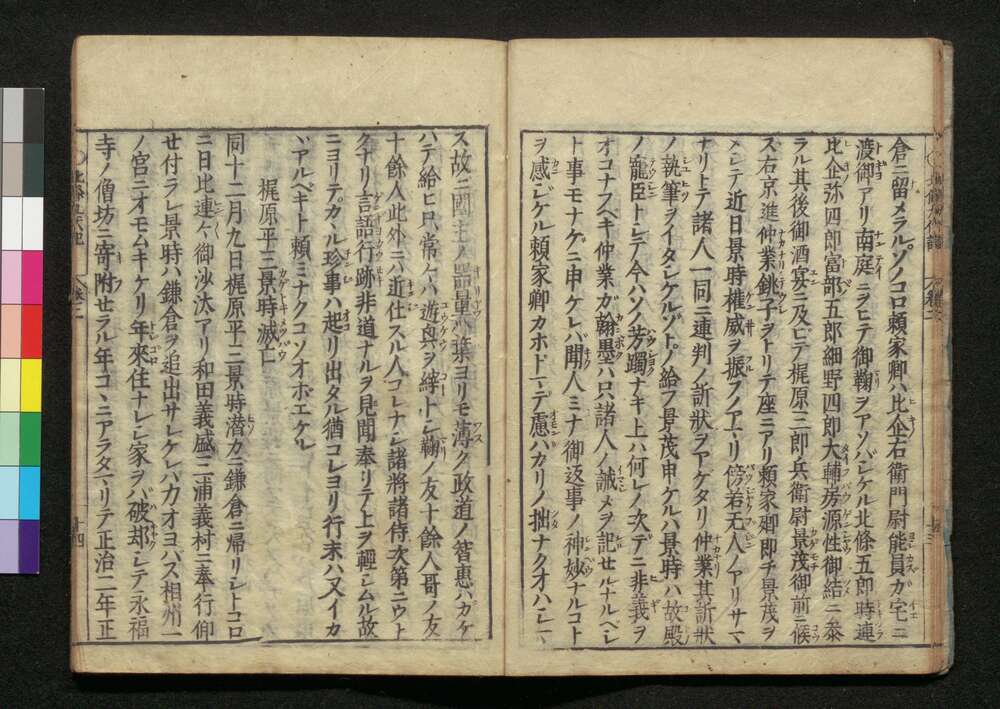 倉ニ留メラル。ソノコロ頼家卿ハ比企右衛門尉能員カ宅ニ
渡御アリ南庭ニヲヒテ御鞠ヲアソバレケル北條五郎時連
比企弥四郎富部五郎細野四郎大輔房源性御結ニ参
ラル其後御酒宴ニ及ビテ梶原三郎兵衛尉景茂御前ニ候
ス右京進仲業銚子ヲトリテ座ニアリ頼家卿即チ景茂ヲ
メシテ近日景時權威ヲ振フノアマリ傍若无人ノアリサマ
ナリトテ諸人一同ニ連判ノ訴狀ヲアゲタリ仲業其訴狀
ノ執筆ヲイタシケルゾトノ給フ景茂申ケルハ景時ハ故殿
ノ寵臣トシテ今ハソノ芳躅ナキ上ハ何レノ次デニ非義ヲ
オコナスベキ仲業ガ翰墨ハ只諸人ノ誡メヲ記セルナルベシ
ト事モナゲニ申ケレバ聞人ミナ御返事ノ神妙ナルコト
ヲ感シケル頼家卿カホドマデ慮ハカリノ拙ナクオハシマ
ス故ニ國主ノ器量ハ葉ヨリモ薄ク政道ノ智惠ハカケ
ハテ給ヒ只常々ハ遊興ヲ縡トシ鞠ノ友十餘人哥ノ友
十餘人此外ニハ近仕スル人コレナシ諸將諸侍次第ニウト
クナリ言語行跡非道ナルヲ見聞奉リテ上ヲ輕シムル故
ニヨリテカヽル珍事ハ起リ出タル猶コレヨリ行末ハ又イカ
ヾアルベキト頼ミナクコソオボエケレ
梶原平三景時滅亡
同十二月九日梶原平三景時潜カニ鎌倉ニ帰リシトコロ
ニ日比連々御沙汰アリ和田義盛三浦義村ニ奉行仰
セ付ラレ景時ハ鎌倉ヲ追出サレケレバ力オヨハズ相州一
ノ宮ニオモムキケリ年來住ナレシ家ヲバ破却シテ永福
寺ノ僧坊ニ寄附セラル年コヽニアラタマリテ正治二年正
十四